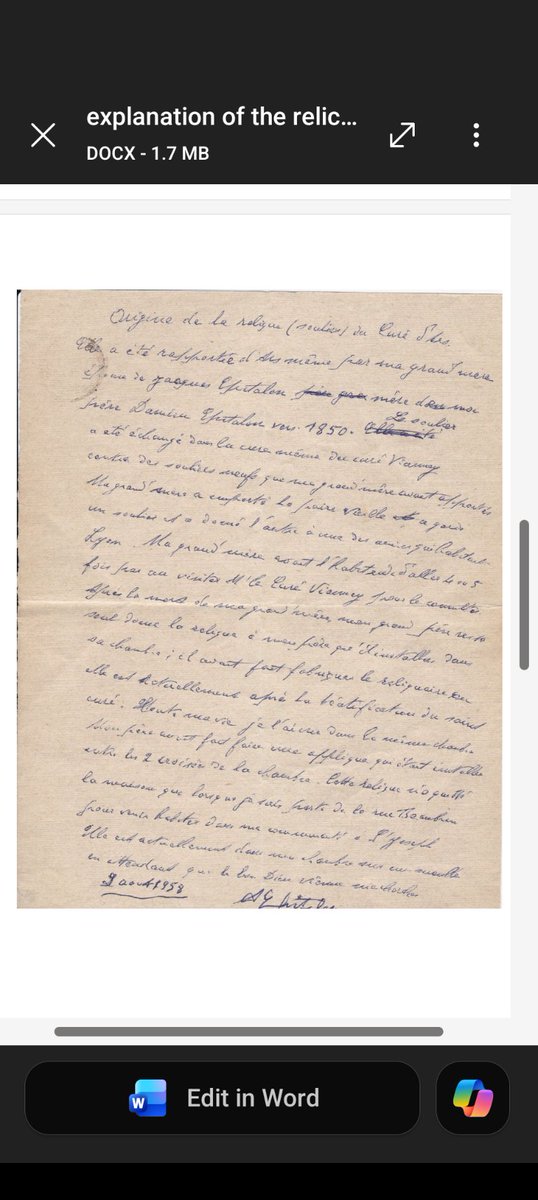 explanation of the relic...
DOCX - 1.7 MB
Origine de la relique (soulier) du Curé d'Ars.
Elle a été rapportée d'Ars même par ma grand'mère
femme de Jacques Epitalon, mère de mon
père Damien Epitalon vers 1850. Le soulier
a été échangé dans la cure même du curé Vianney
contre des souliers neufs que ma grand'mère avait apportés
Ma grand'mère a emporté la paire vieille a gardé
un soulier et a donné l'autre à une des amies qui habitait
Lyon. Ma grand'mère avait l'habitude d'aller 4 ou 5
fois par an visiter Mr le Curé Vianney pour le consulter
Après la mort de ma grand'mère, mon grand père
donna la relique à mon père qui l'installa dans
sa chambre; il avait fait fabriquer le reliquaire
elle est actuellement après la béatification du saint
curé. Toute ma vie je l'ai vue dans la même chambre
Mon père avait fait faire une applique qui était installée
entre les 2 croisées de la chambre. Cette relique n'a quitté
la maison que lorsque je suis partie de la rue
pour venir habiter dans ma communauté à St Joseph
Elle est actuellement dans ma chambre sur un meuble
en attendant que le bon Dieu vienne me chercher
9 août 1958
Edit in Word
W